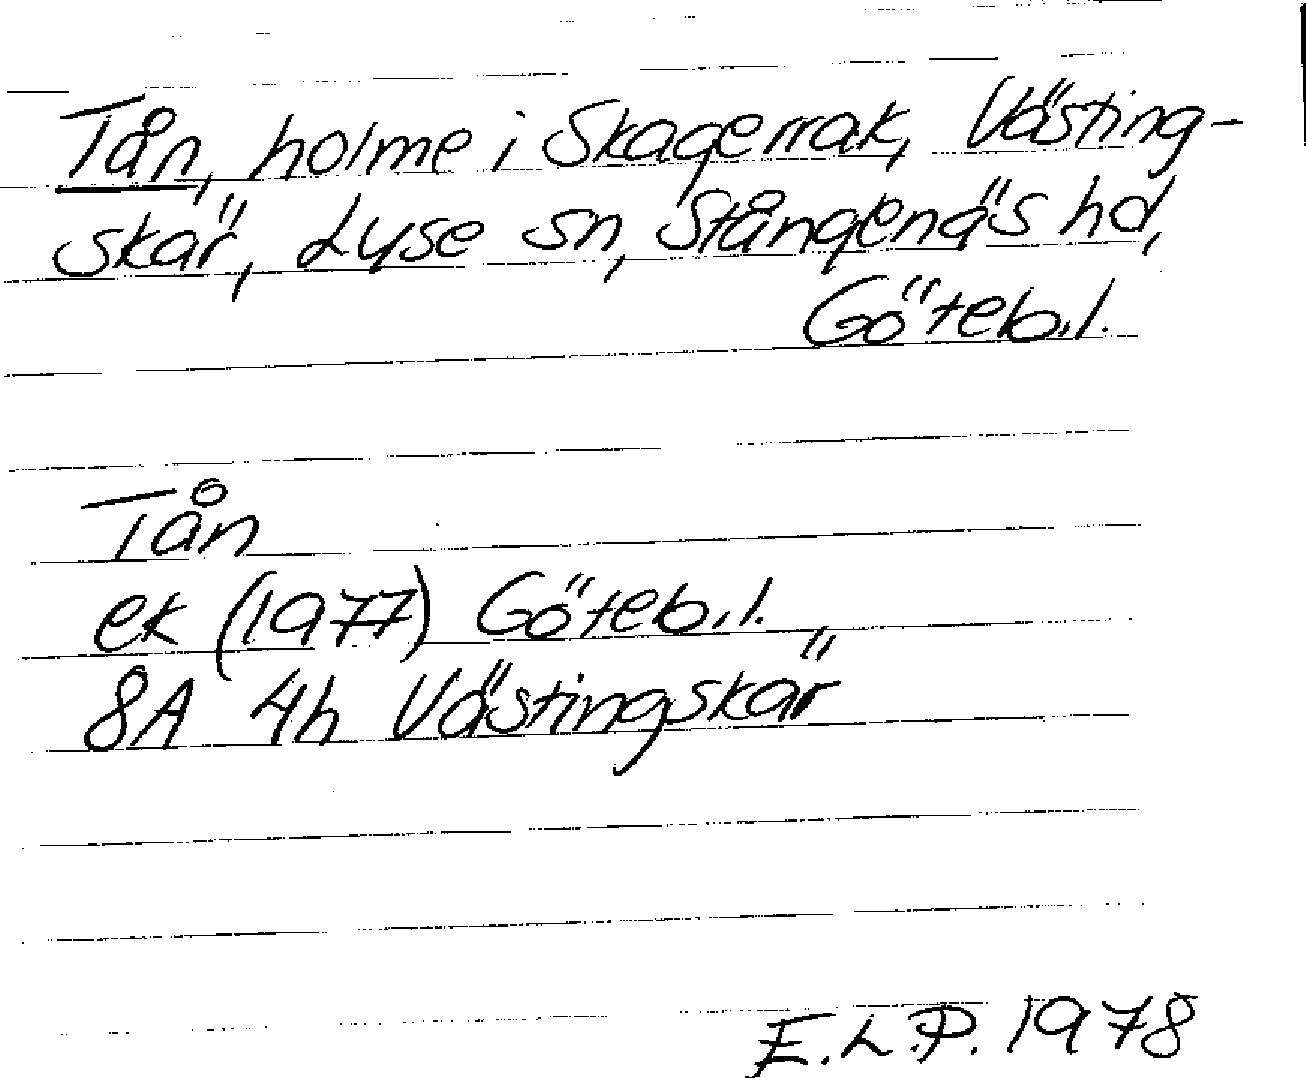 Tån, holme i Skagerrak, Västing-
skär, Lyse sn, Stångenäs hd,
Göteb.l.
Tån
ek (1977) Göteb.l.
8A 4h Västingskär
E.L.P. 1978